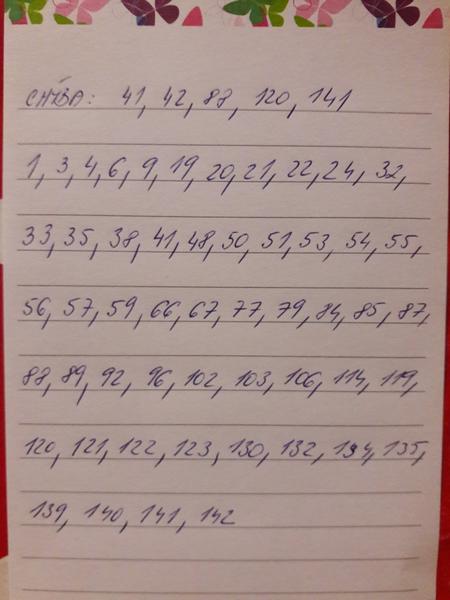 CHÝBA: 41, 42, 88, 120, 141
1, 3, 4, 6, 9, 19, 20, 21, 22, 24, 32,
33, 35, 38, 41, 48, 50, 51, 53, 54, 55,
56, 57, 59, 66, 67, 77, 79, 84, 85, 87,
88, 89, 92, 96, 102, 103, 106, 114, 119,
120, 121, 122, 123, 130, 132, 134, 135,
139, 140, 141, 142